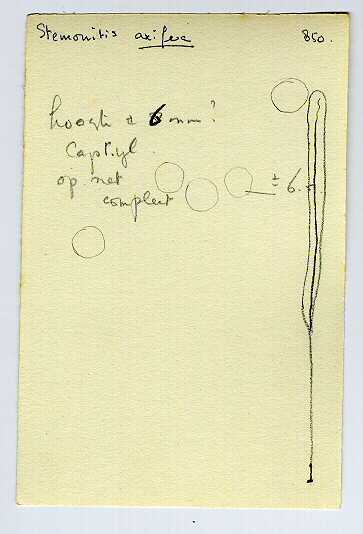 Stemonitis axifera 850.
hoogte ± 6 mm?
Cap.
op net
compleet
± 6.5